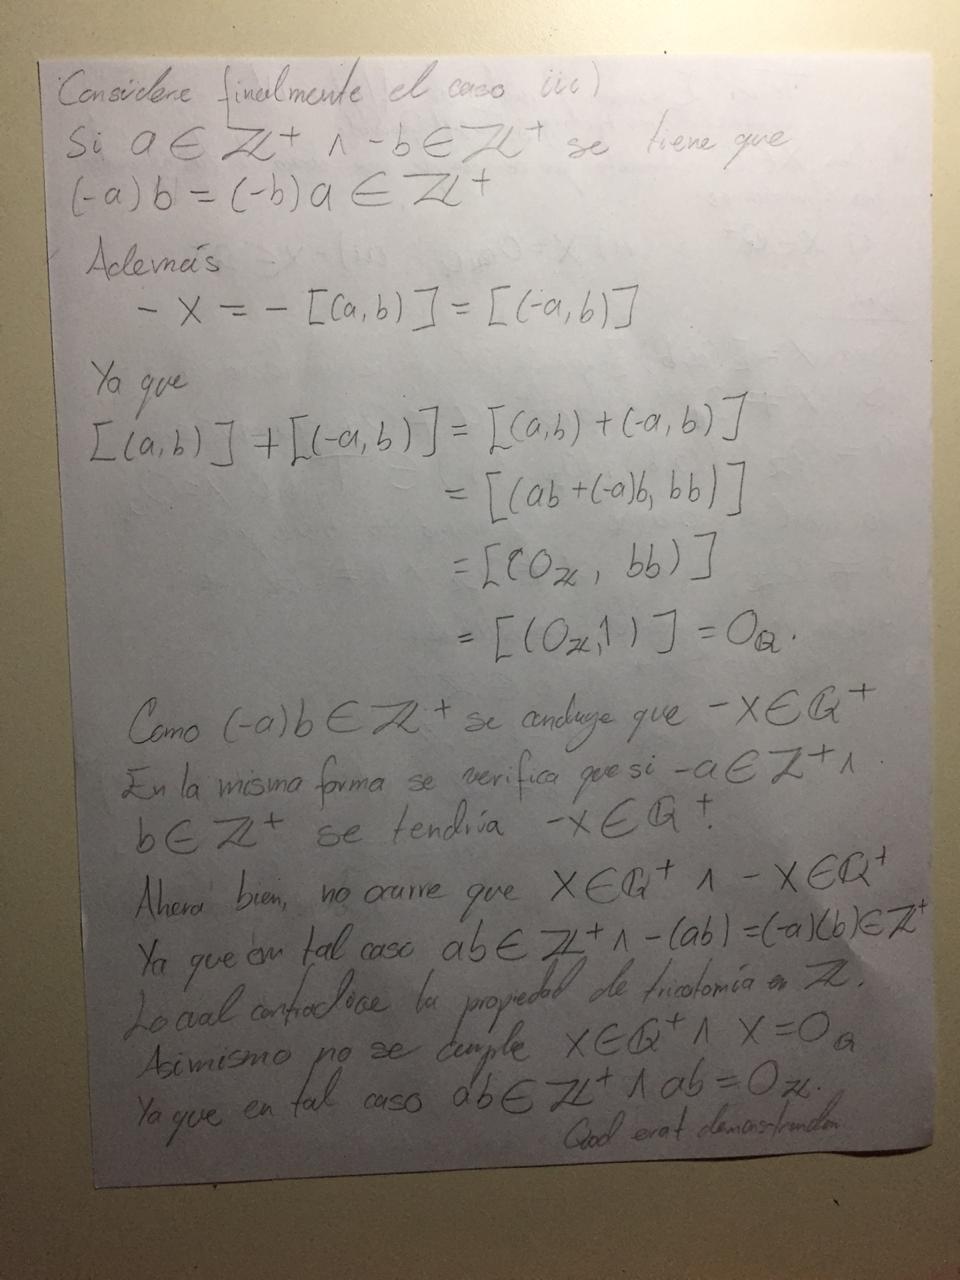 Considere finalmente el caso iii)
Si a ∈ ℤ⁺ ∧ -b ∈ ℤ⁺ se tiene que
(-a)b = (-b)a ∈ ℤ⁺
Además
- X = - [(a,b)] = [(-a,b)]
Ya que
[(a,b)] + [(-a,b)] = [(a,b) + (-a,b)]
= [(ab + (-a)b, bb)]
= [(0ℤ, bb)]
= [(0ℤ,1)] = 0ℚ.
Como (-a)b ∈ ℤ⁺ se concluye que -X ∈ ℚ⁺
En la misma forma se verifica que si -a ∈ ℤ⁺ ∧
b ∈ ℤ⁺ se tendría -X ∈ ℚ⁺.
Ahora bien, no ocurre que X ∈ ℚ⁺ ∧ - X ∈ ℚ⁺
Ya que en tal caso ab ∈ ℤ⁺ ∧ -(ab) = (-a)(b) ∈ ℤ⁺
Lo cual contradice la propiedad de tricotomía en ℤ.
Asimismo no se cumple X ∈ ℚ⁺ ∧ X = 0ℚ
Ya que en tal caso ab ∈ ℤ⁺ ∧ ab = 0ℤ.
Quod erat demonstrandum